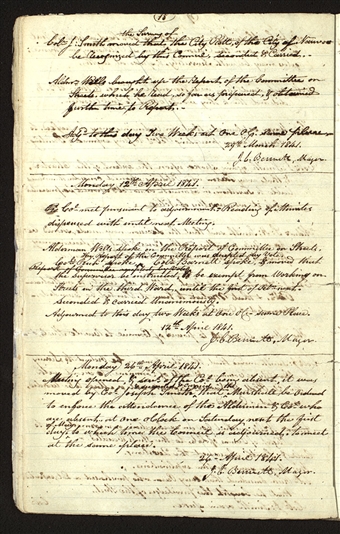 18
the Survey of
Col. J. Smith moved that the City Plot, of the City of Nauvoo
be Recognized by this Council, seconded & Carried.
Alderⁿ Wells brought up the Report, of the Committee on
Streets, which he Read, so far as prepared, & obtained
further time to Report.
Adjᵈ to this day Two Weeks at One O'C. same place
29th March 1841.
J. C. Bennett, Mayor.
Monday 12th April 1841.
Col met pursuant to adjournment. Reading of Minutes
dispensed with until next Meeting.
Alderman Wells spoke on the Report of Committee on Streets.
The Report of the Committee was accepted by Vote.
Report
the Supervisor be instructed to be exempt from Working on
Streets in the third Ward, until the first of next.
Seconded & Carried Unanimously.
Adjourned to this day two Weeks at One O'C. same Place.
12th April 1841.
J. C. Bennett, Mayor
Monday 26th April 1841.
Meeting opened, & sev'l of the Col. being absent, it was
moved by Col. Joseph Smith, that Marshall be Ordered
to enforce the attendance of the Aldermen & Cols. who
are absent, at one o'clock on Saturday next the first
day of May, to whom time the Council is adjourned, to meet
at the same place.
April 1841.
J. C. Bennett, Mayor.